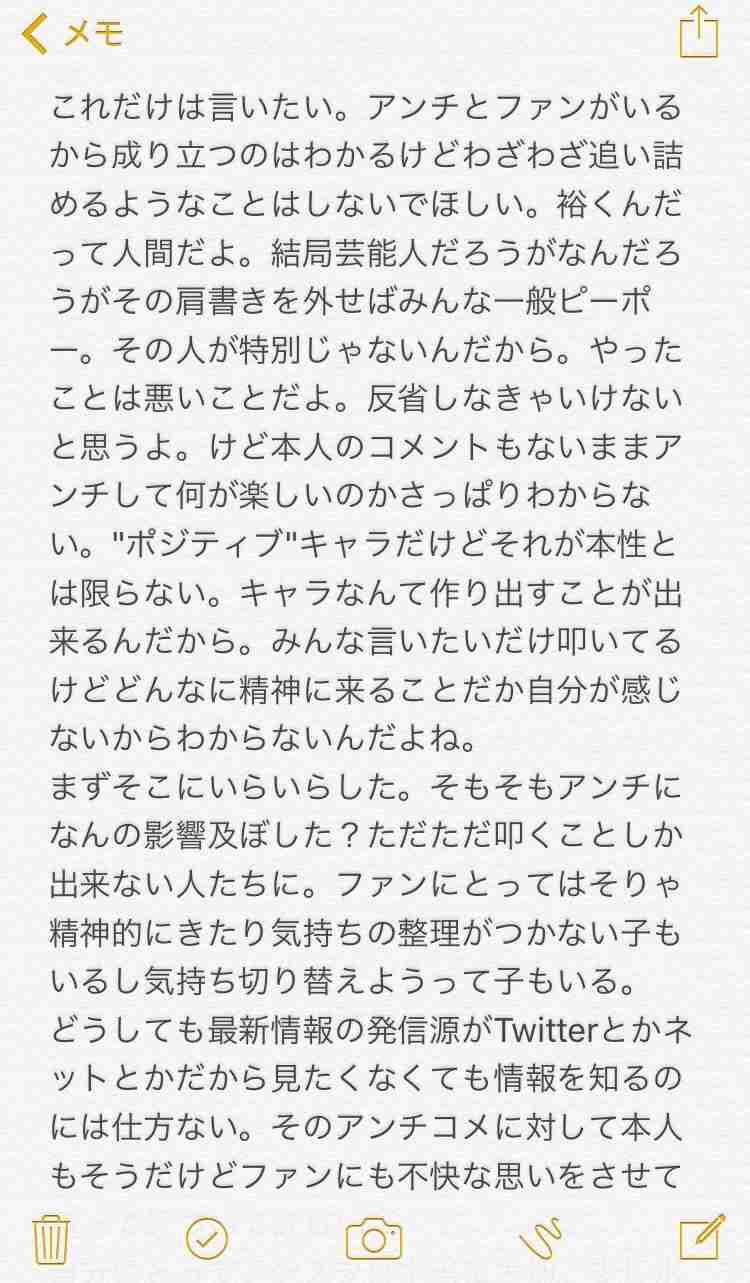 メモ
これだけは言いたい。アンチとファンがいる
から成り立つのはわかるけどわざわざ追い詰
めるようなことはしないでほしい。裕くんだ
って人間だよ。結局芸能人だろうがなんだろ
うがその肩書きを外せばみんな一般ピーポ
ー。その人が特別じゃないんだから。やった
ことは悪いことだよ。反省しなきゃいけない
と思うよ。けど本人のコメントもないままア
ンチして何が楽しいのかさっぱりわからな
い。"ポジティブ"キャラだけどそれが本性と
は限らない。キャラなんて作り出すことが出
来るんだから。みんな言いたいだけ叩いてる
けどどんなに精神に来ることだか自分が感じ
ないからわからないんだよね。
まずそこにいらいらした。そもそもアンチに
なんの影響及ぼした？ただただ叩くことしか
出来ない人たちに。ファンにとってはそりゃ
精神的にきたり気持ちの整理がつかない子も
いるし気持ち切り替えようって子もいる。
どうしても最新情報の発信源がTwitterとかネ
ットとかだから見たくなくても情報を知るの
には仕方ない。そのアンチコメに対して本人
もそうだけどファンにも不快な思いをさせて